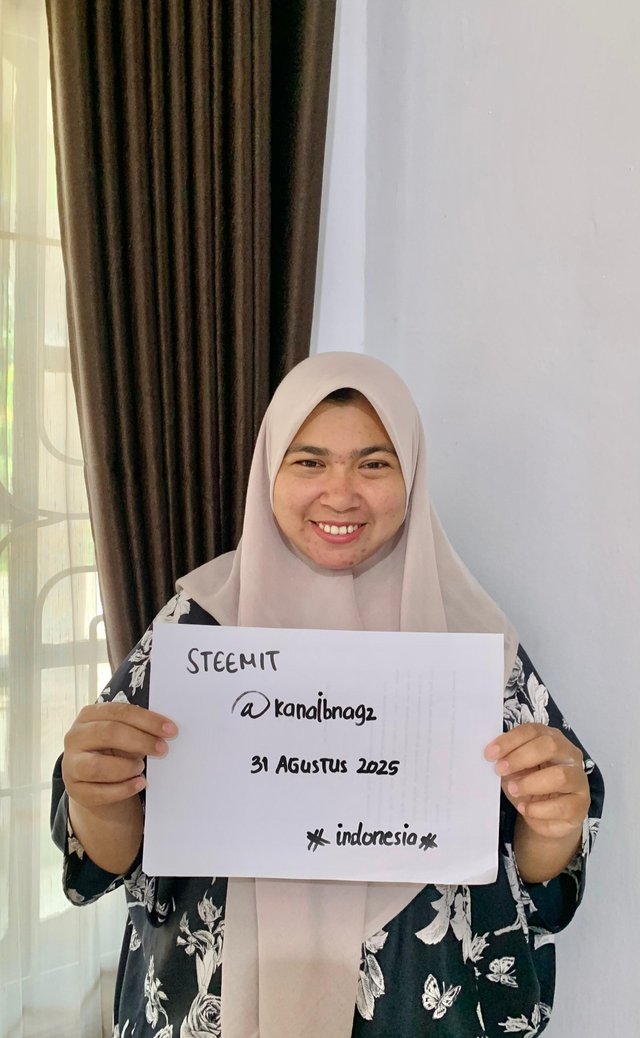 STEEMIT
@kanaibnagz
31 AGUSTUS 2025
# indonesia #